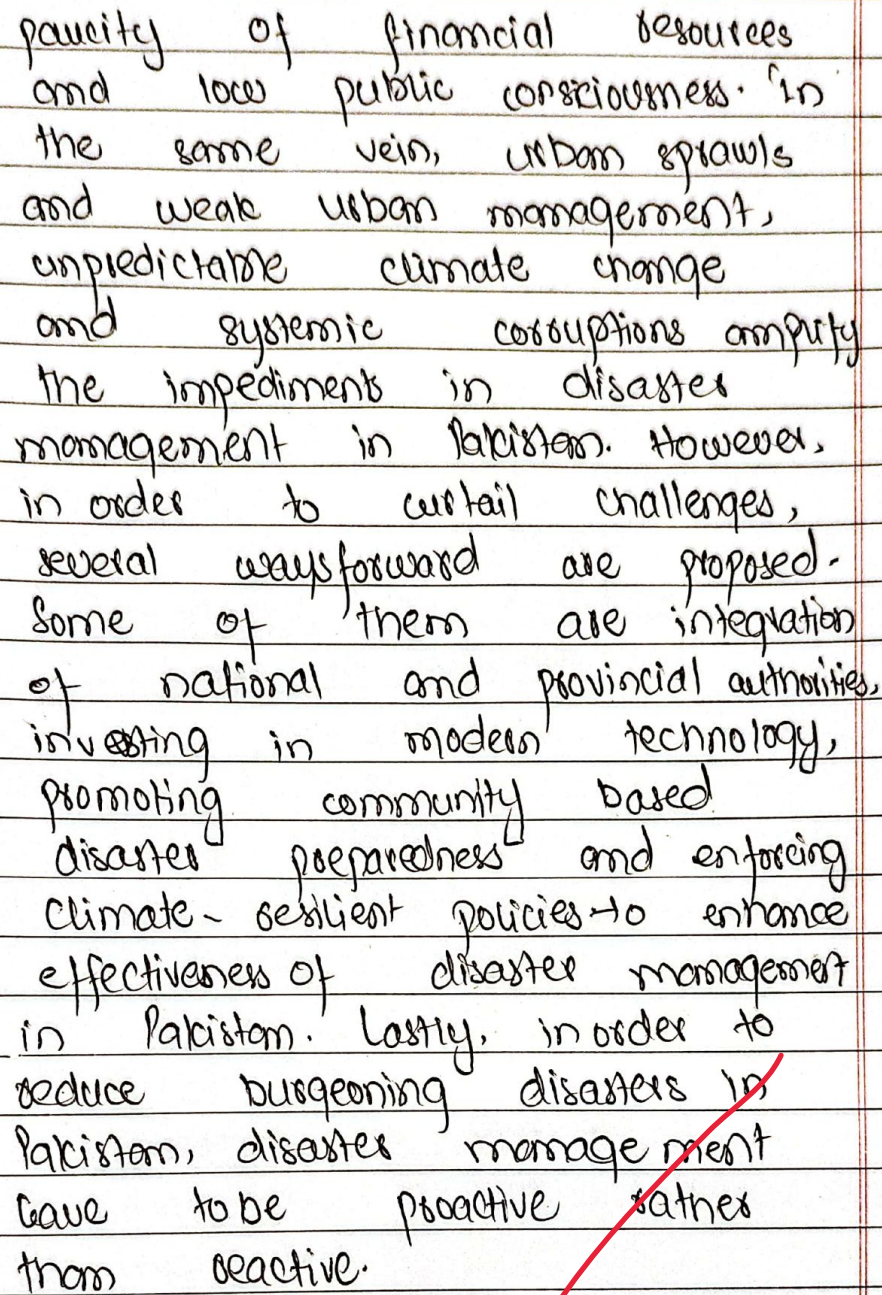 paucity of financial resources
and low public consciousness. In
the same vein, urban sprawls
and weak urban management,
unpredictable climate change
and systemic corruptions amplify
the impediments in disaster
management in Pakistan. However,
in order to curtail challenges,
several ways forward are proposed.
Some of them are integration
of national and provincial authorities,
investing in modern technology,
promoting community based
disaster preparedness and enforcing
climate-resilient policies to enhance
effectiveness of disaster management
in Pakistan. Lastly, in order to
reduce burgeoning disasters in
Pakistan, disaster management
have to be proactive rather
than reactive.